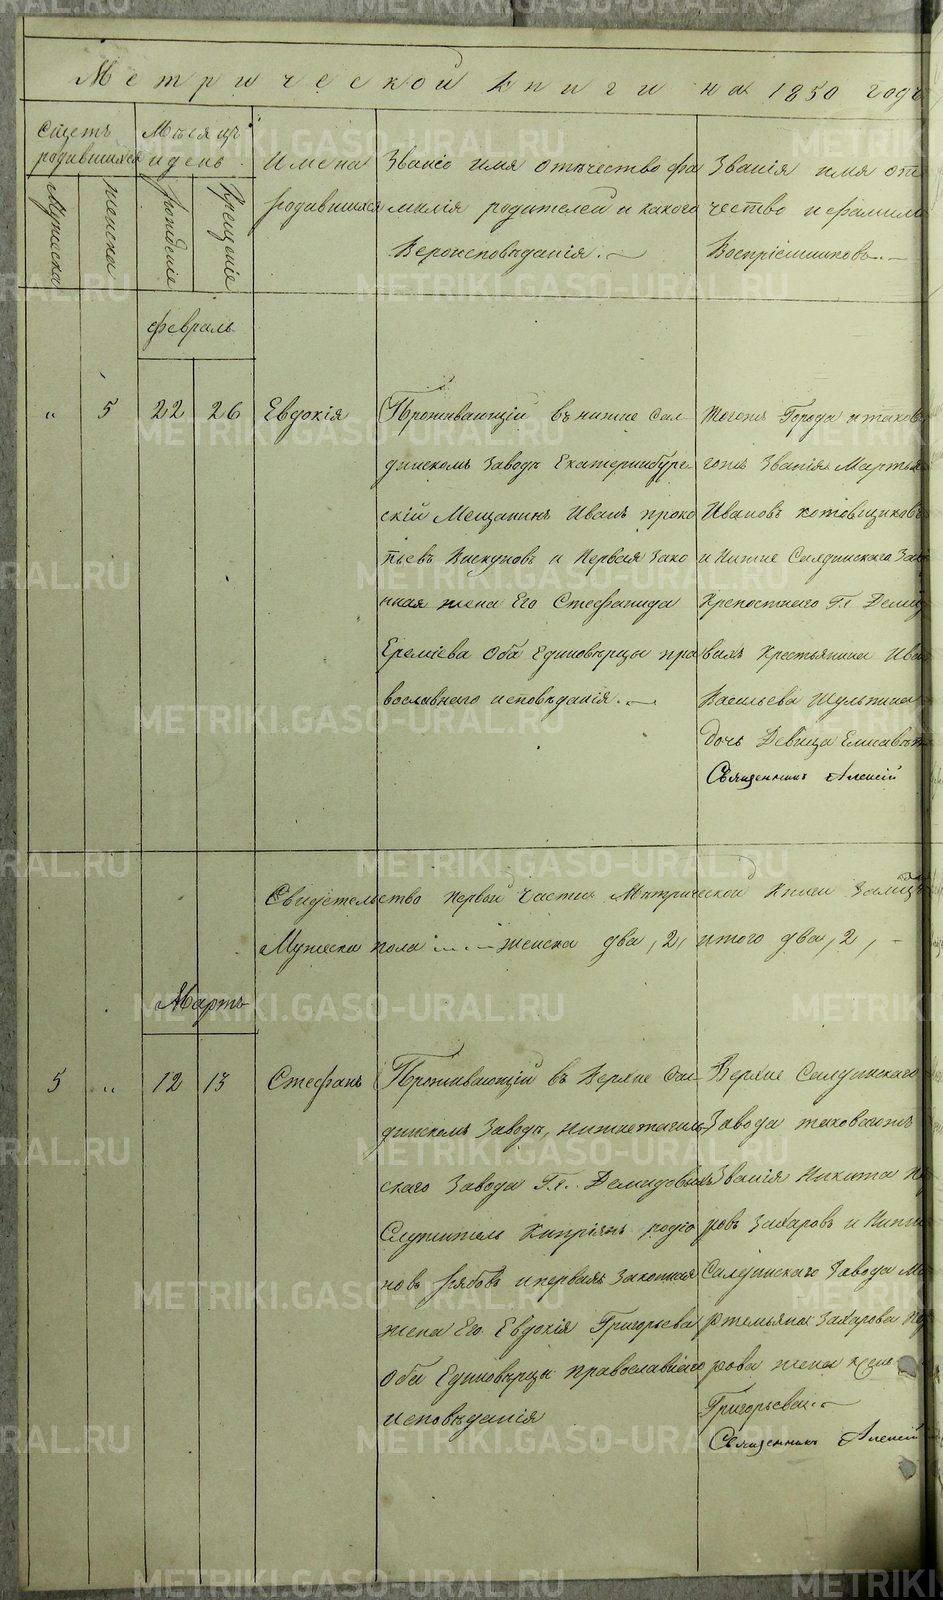 Метрической книги на 1850 годъ
Счетъ родившихся
Мужеска
женска
Месяцъ и день
рожденiе
крещенiе
Имена родившихся
Званiе имя отчество фа
милiя родителей и какого
Вероисповѣданiя.
Званiя имя оте
чество и фамилiя
Воспрiемниковъ.
Февраль
" 5 22 26 Евдокiя
Проживающiй въ нижне Сал-
динскомъ Заводѣ Екатеринбург-
скiй Мещанинъ Иванъ проко
пьевъ и Первая Зако
нная жена Его Стефанида
Еремiева Оба Единовѣрцы пра
вославнаго исповѣданiя.
тогожъ Города и таков
гожъ Званiя Мартья
Ивановъ котовщиковъ
и Нижне Салдинскаго Зав
Крепостнаго Гг Демид
выхъ Крестьянина Ива
Васильева Шульпина
дочь Девица Елисавет
Священникъ Алексiй
Свидетельство первой Части Метрической Книги
Мужеска пола — женска два, 2, итого два, 2, -
Мартъ
5 " 12 13 Стефанъ
Проживающiй въ Верхне Сал-
динскомъ Заводѣ, нижнетагиль
скаго Завода Гг. Демидовыхъ
Служитель Кипрiянъ родiо
новъ Рябовъ и первая Законная
жена Его Евдокiя Григорьева
Оба Единовѣрцы православнаго
исповѣданiя
Верхне Салдинскаго
Завода таковагожъ
Званiя Никита
ровъ Захаровъ и Нижне
Салдинскаго Завода
ртемьяна Захарова
рова жена
Григорьева
Священникъ Алексiй
METRIKI.GASO-URAL.RU